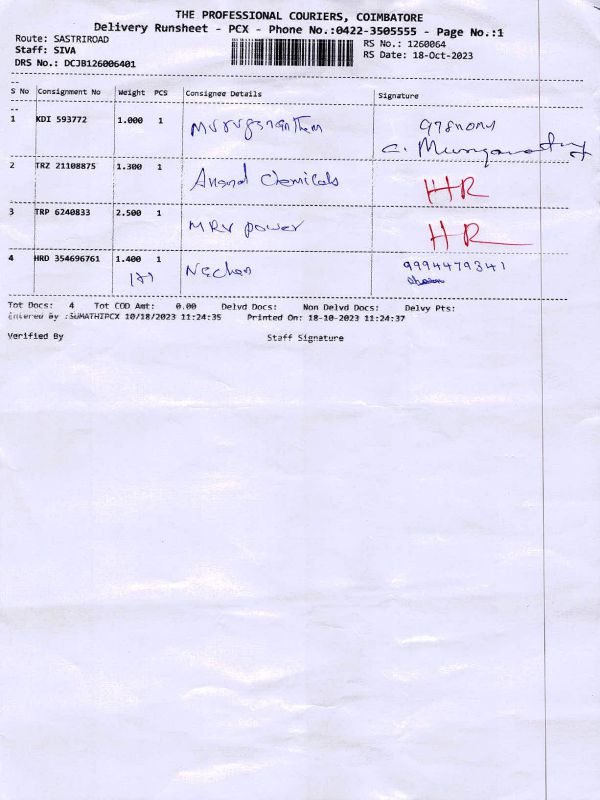 THE PROFESSIONAL COURIERS, COIMBATORE
Delivery Runsheet - PCX - Phone No.:0422-3505555 - Page No.:1
Route: SASTRIROAD RS No.: 1260064
Staff: SIVA RS Date: 18-Oct-2023
DRS No.: DCJB126006401
S No Consignment No Weight PCS Consignee Details Signature
1 KDI 593772 1.000 1
C. Muruganathan
2 TRZ 21108875 1.300 1 Anand Chemicals HR
3 TRP 6240833 2.500 1 MRV power HR
4 HRD 354696761 1.400 1 9994479341
Tot Docs: 4 Tot COD Amt: 0.00 Delvd Docs: Non Delvd Docs: Delvy Pts:
Entered By :SUMATHIPCX 10/18/2023 11:24:35 Printed On: 18-10-2023 11:24:37
Verified By Staff Signature